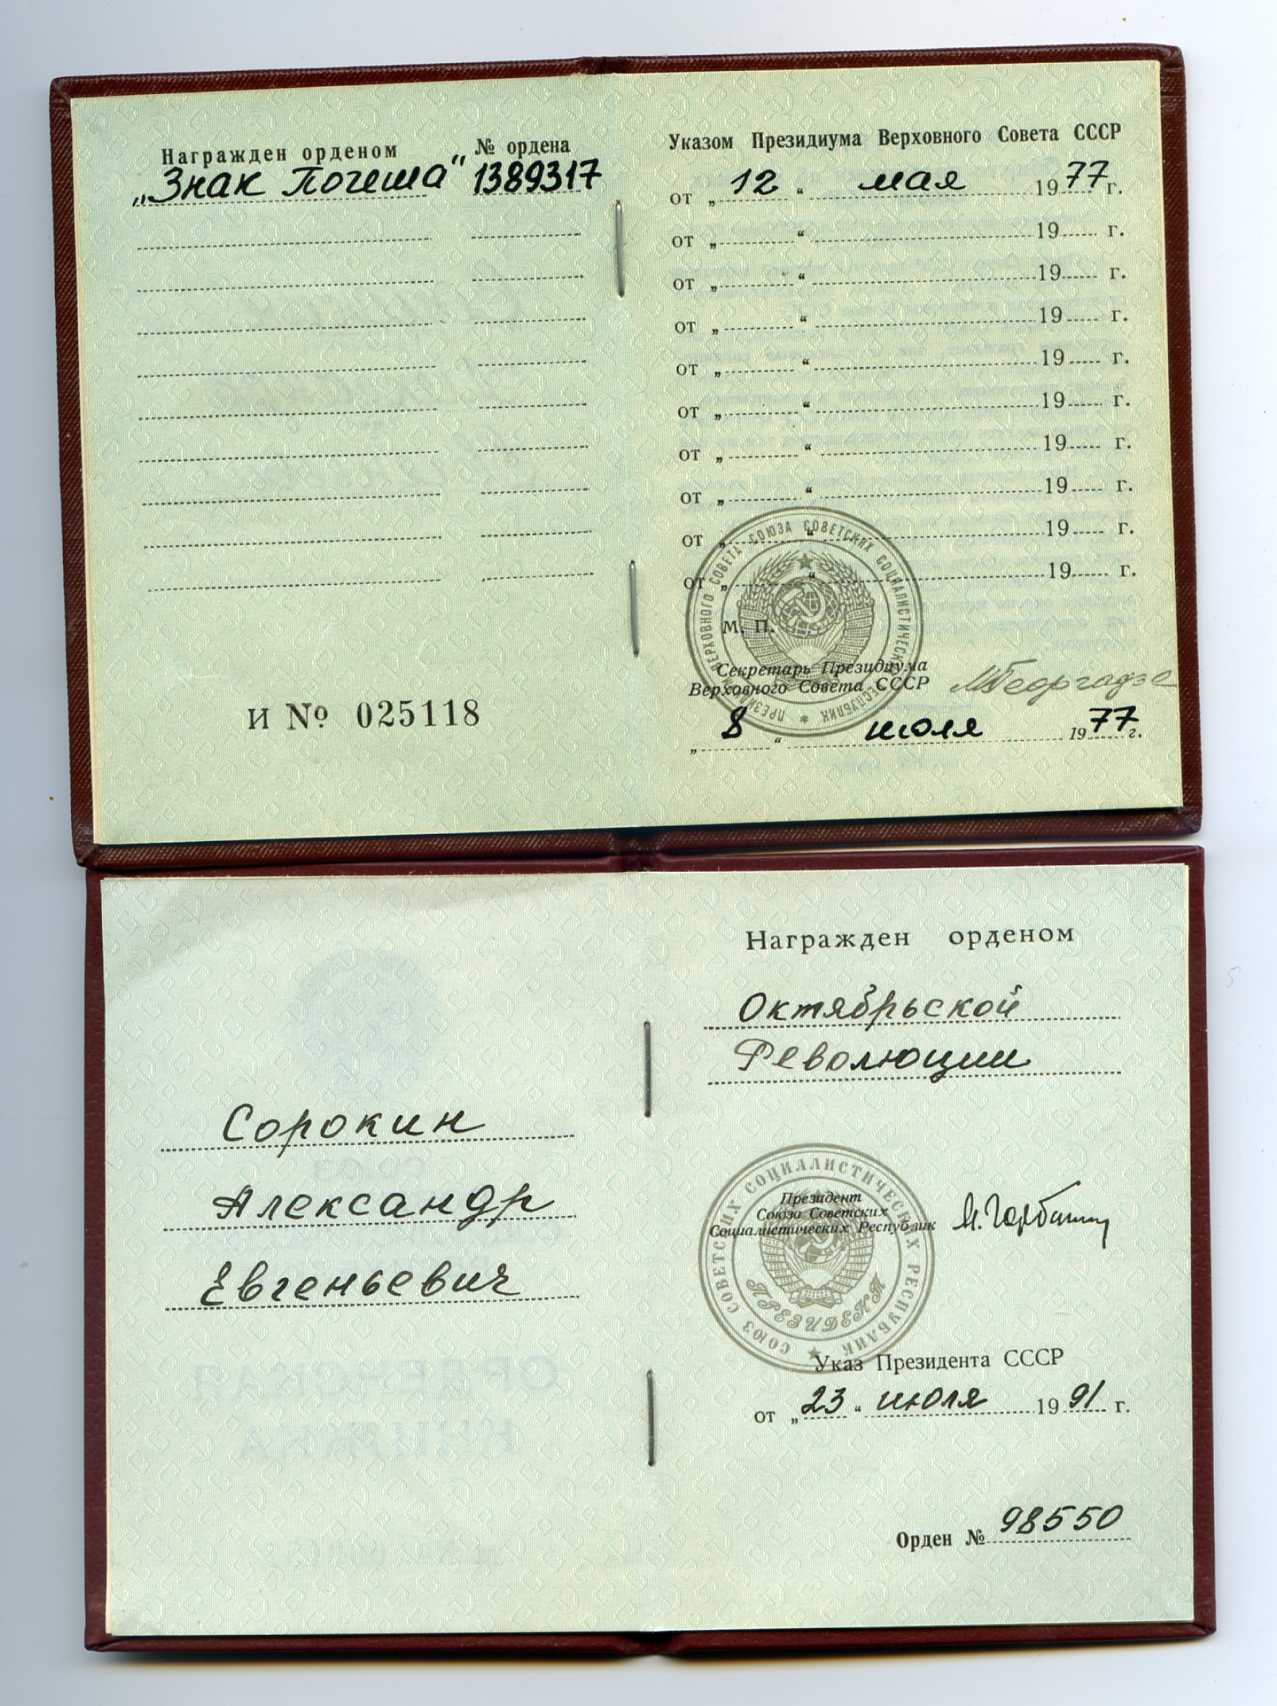 Награжден орденом № ордена
„Знак Почета“ 1389317
И № 025118
Указом Президиума Верховного Совета СССР
от „ 12 “ мая 1977 г.
от „ “ 19 г.
от „ “ 19 г.
от „ “ 19 г.
от „ “ 19 г.
от „ “ 19 г.
от „ “ 19 г.
от „ “ 19 г.
от „ “ 19 г.
от „ “ 19 г.
М. П.
ПРЕЗИДИУМ ВЕРХОВНОГО СОВЕТА СОЮЗА СОВЕТСКИХ СОЦИАЛИСТИЧЕСКИХ РЕСПУБЛИК
Секретарь Президиума
Верховного Совета СССР М. Георгадзе
„ 8 “ июля 1977 г.
Сорокин
Александр
Евгеньевич
Награжден орденом
Октябрьской
Революции
СОЮЗ СОВЕТСКИХ СОЦИАЛИСТИЧЕСКИХ РЕСПУБЛИК
Президент
Союза Советских
Социалистических Республик М. Горбачев
ПРЕЗИДЕНТ
Указ Президента СССР
от „ 23 “ июля 1991 г.
Орден № 98550